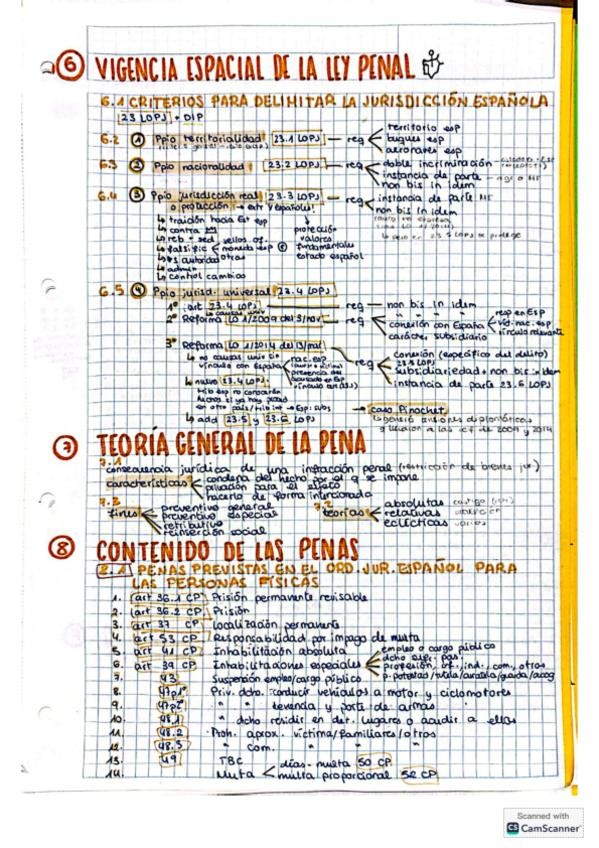 6 VIGENCIA ESPACIAL DE LA LEY PENAL
6.1 CRITERIOS PARA DELIMITAR LA JURISDICCIÓN ESPAÑOLA
23 LOPJ + DIP
6.2 1 Ppio territorialidad 23.1 LOPJ — req
territorio esp
buques esp
aeronaves esp
6.3 2 Ppio nacionalidad 23.2 LOPJ — req
doble incriminación
instancia de parte
non bis in idem
6.4 3 Ppio jurisdicción real 23.3 LOPJ — req
o protección → extr y españoles:
instancia de parte MF
non bis in idem
↳ traición hacia Est esp
↳ contra
↳ reb + sed
↳ falsific
sellos of.
moneda esp
otros
↳ autoridad
↳ admin
↳ control cambios
protección
valores
fundamentales
estado español
6.5 4 Ppio jurisd. universal 23.4 LOPJ
1º art 23.4 LOPJ — req — non bis in idem
2º Reforma LO 1/2009 del 3/nov — req
conexión con España
resp en Esp
víc. nac. esp
vínculo relevante
carácter subsidiario
3º Reforma LO 1/2014 del 13/mar
↳ no causas univ sin
vínculo con España
nac. esp
presencia del
acusado en Esp
req
conexión (específico del delito)
23.4 LOPJ
subsidiariedad + non bis idem
instancia de parte 23.6 LOPJ
↳ nuevo 23.4 LOPJ
trib esp no conocerán
hechos si ya hay proced
en otro país/trib int → Esp: subs
↳ add 23.5 y 23.6 LOPJ
caso Pinochet
↳ generó tensiones diplomáticas
y llevaron a las ref de 2009 y 2014
7 TEORÍA GENERAL DE LA PENA
7.1
consecuencia jurídica de una infracción penal (restricción de bienes jur)
características
condena del hecho por el q se impone
privación para el afecto
hacerlo de forma intencionada
7.2
fines
preventivo general
preventivo especial
retributivo
reinserción social
7.2
teorías
absolutas
relativas
eclécticas varios
8 CONTENIDO DE LAS PENAS
8.1 PENAS PREVISTAS EN EL ORD. JUR. ESPAÑOL PARA
LAS PERSONAS FÍSICAS
1. art 36.1 CP Prisión permanente revisable
2. art 36.2 CP Prisión
3. art 37 CP Localización permanente
4. art 53 CP Responsabilidad por impago de multa
5. art 41 CP Inhabilitación absoluta
6. art 39 CP Inhabilitaciones especiales
empleo o cargo público
dcho sufr. pas.
profesión, of., ind., com., otros
p. potestad/tutela/curatela/guarda/acog
7. 43 Suspensión empleo/cargo público
8. 47p1º Priv. dcho. conducir vehículos a motor y ciclomotores
9. 47p2º " " tenencia y porte de armas
10. 48.1 " " dcho residir en det. lugares o acudir a ellos
11. 48.2 Proh. aprox. víctima/familiares/otros
12. 48.3 " com. " " "
13. 49 TBC
14. Multa
días-multa 50 CP
multa proporcional 52 CP
Scanned with
CS CamScanner